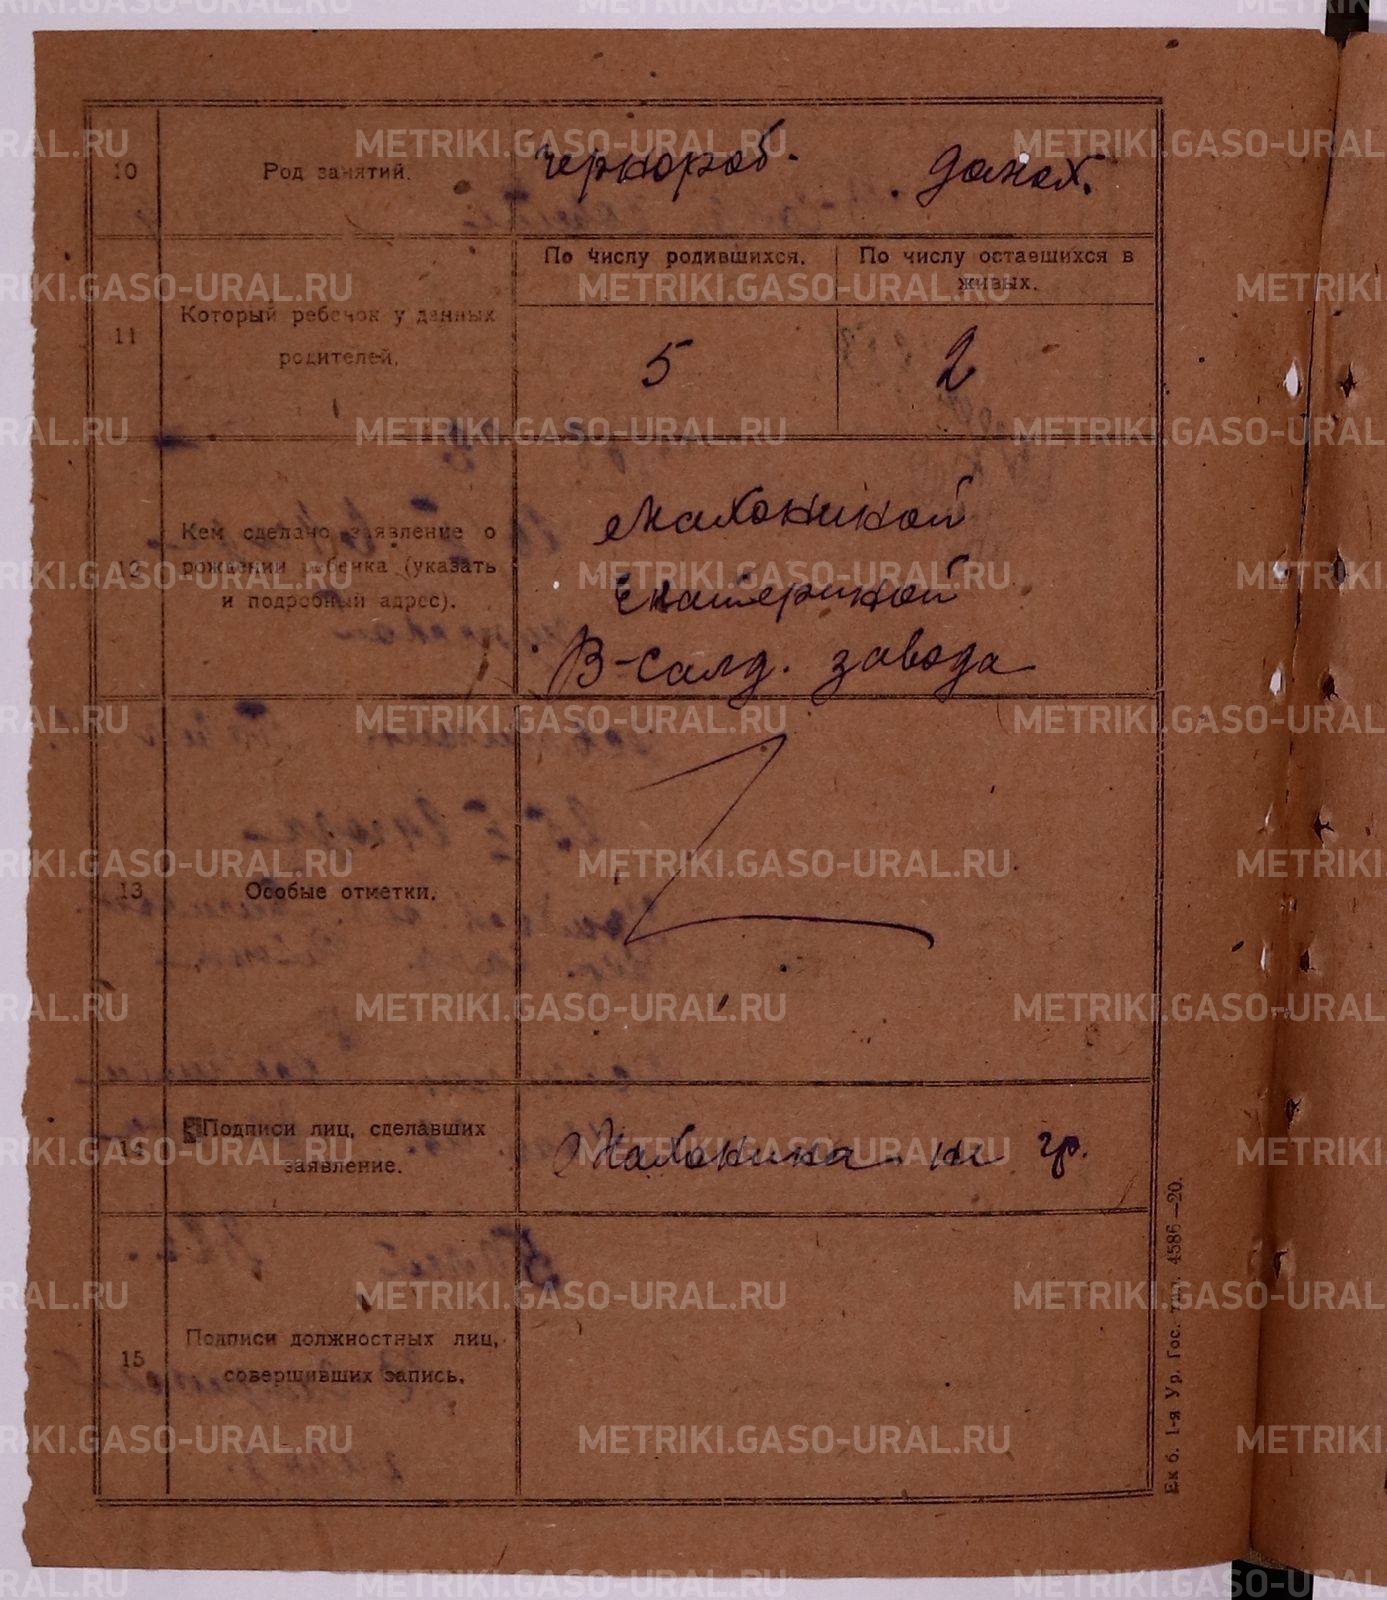 10 Род занятий. чернораб. домох.
11 Который ребенок у данных родителей.
По числу родившихся. По числу оставшихся в живых.
5 2
12 Кем сделано заявление о рождении ребенка (указать и подробный адрес).
Махониной
Екатериной
В-салд. завода
13 Особые отметки.
14 Подписи лиц, сделавших заявление.
Махонина - н гр.
15 Подписи должностных лиц, совершивших запись.
Ек б. 1-я Ур. Гос. тип. 4586—20.
METRIKI.GASO-URAL.RU